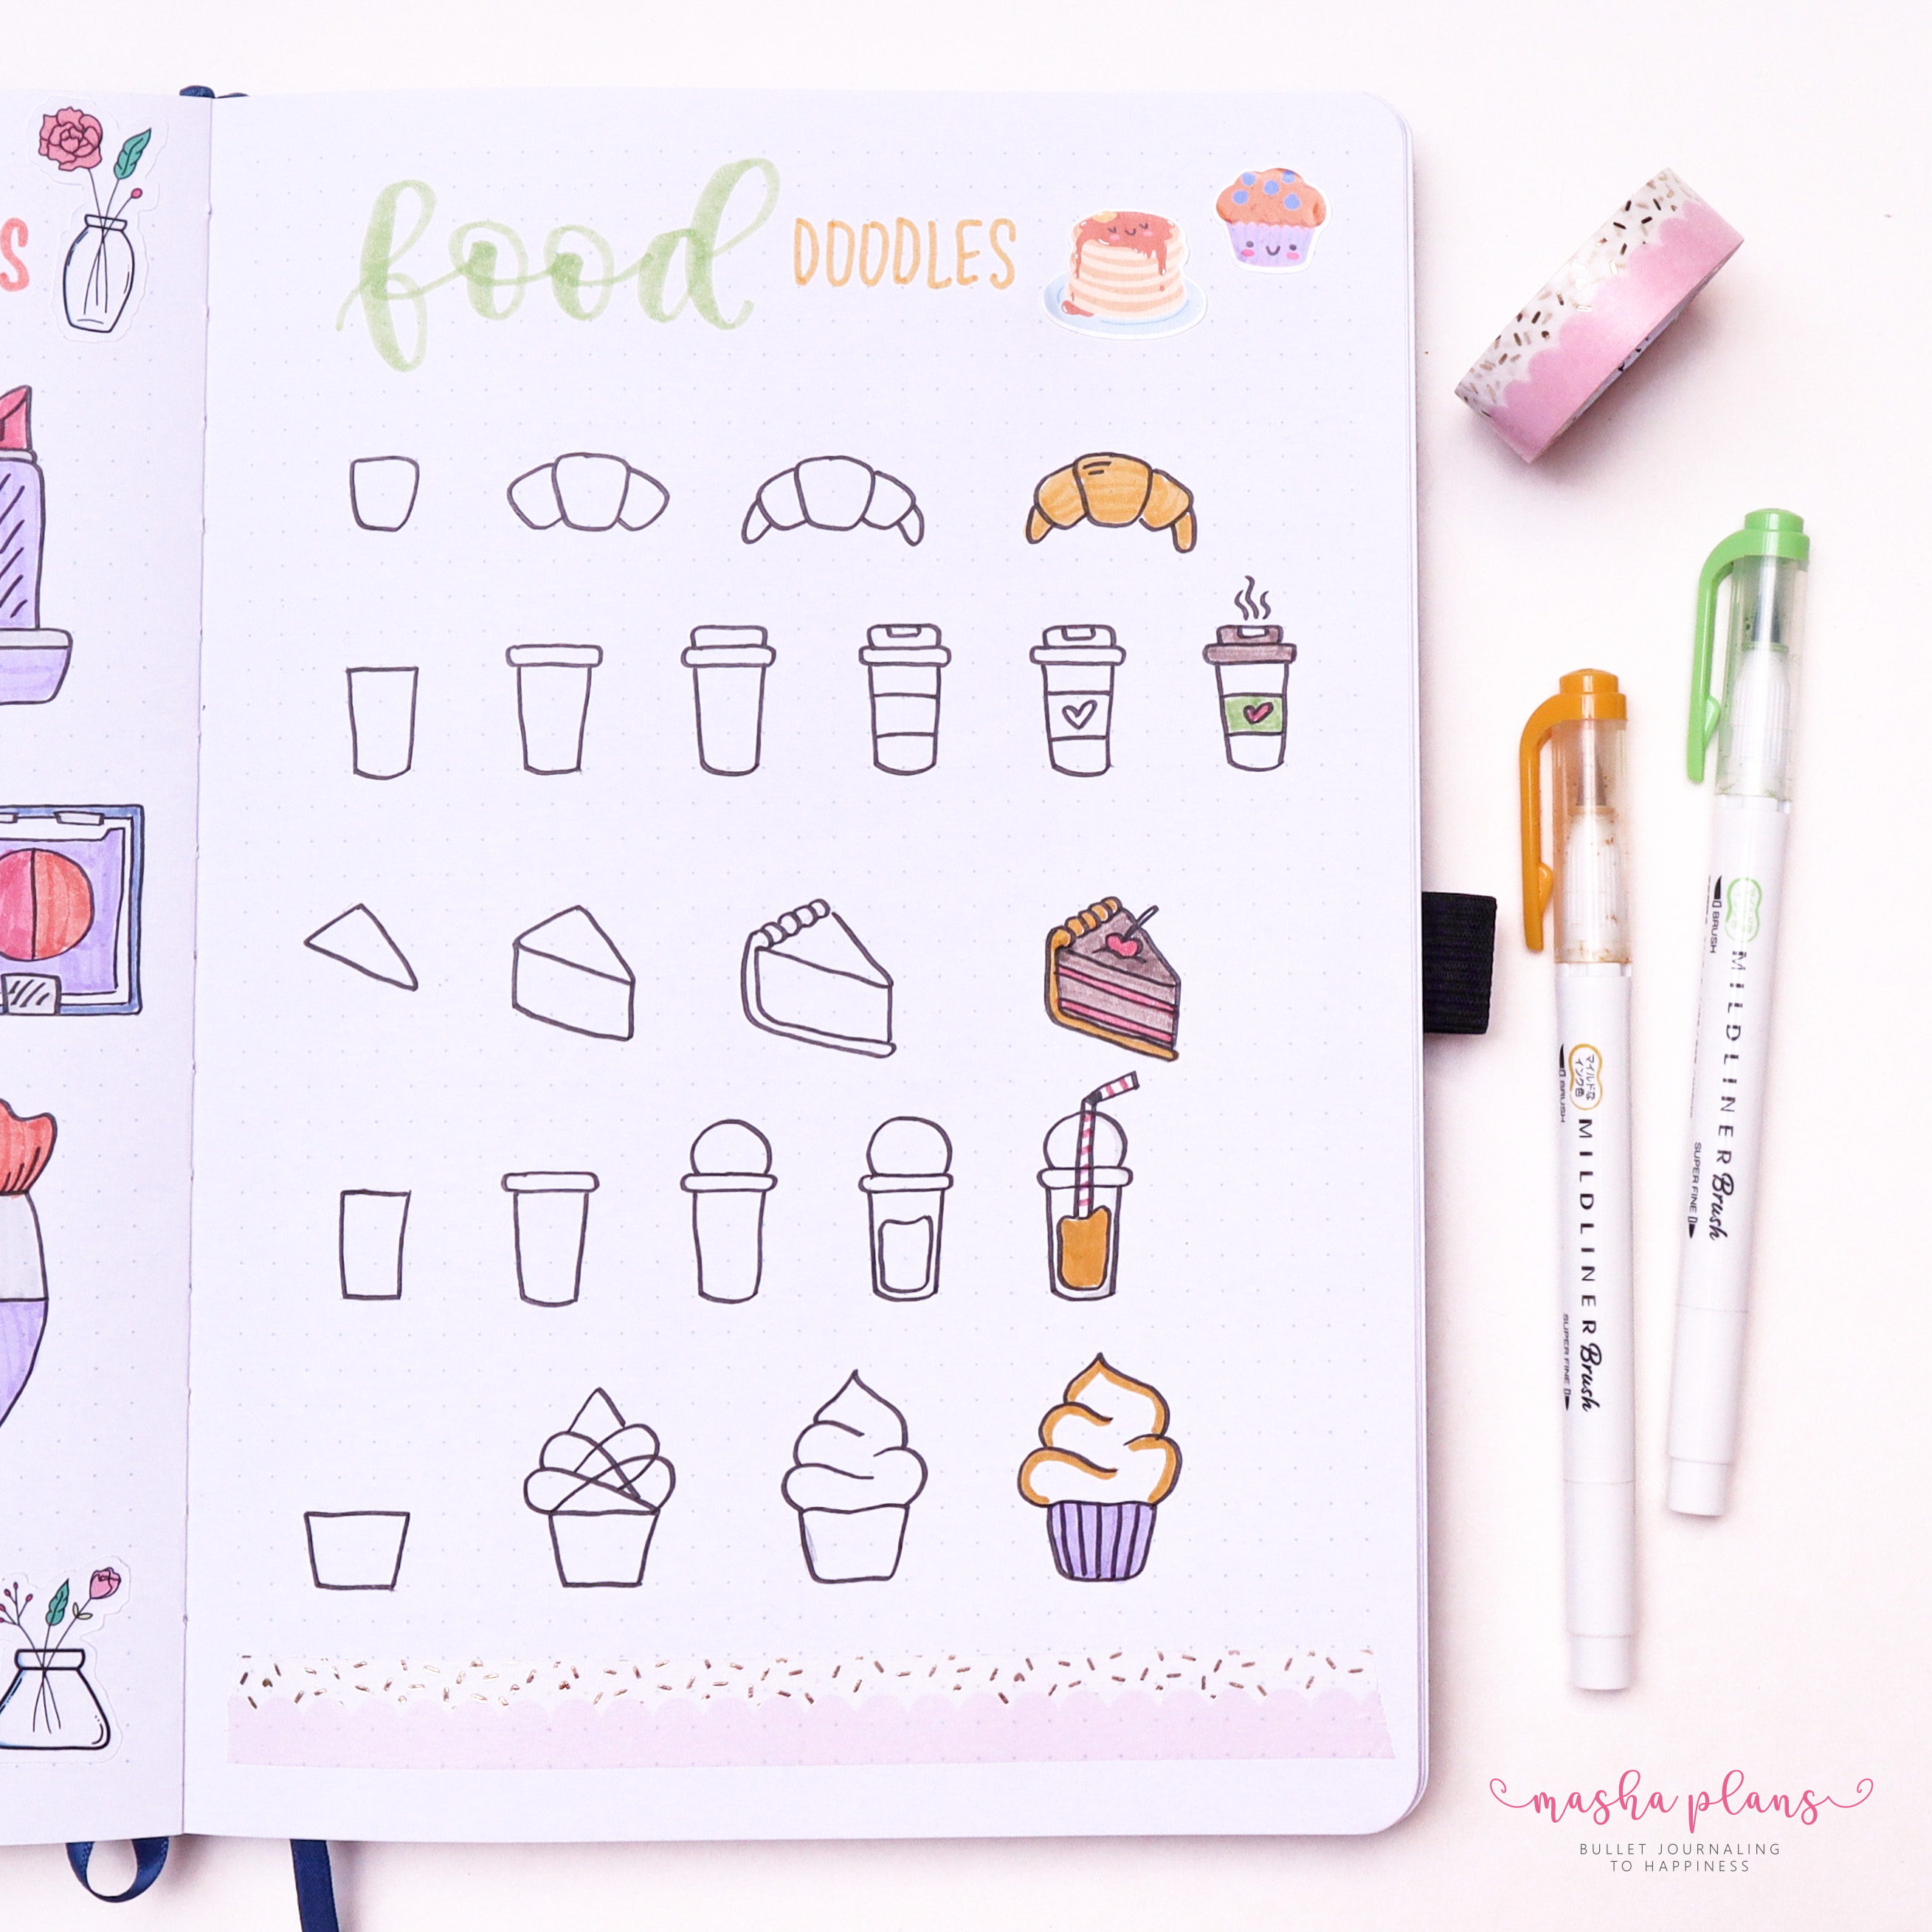 S
food DOODLES
マイルドな
インク色
BRUSH
MILDLINER Brush
SUPER FINE
BRUSH
MILDLINER Brush
SUPER FINE
masha plans
BULLET JOURNALING
TO HAPPINESS